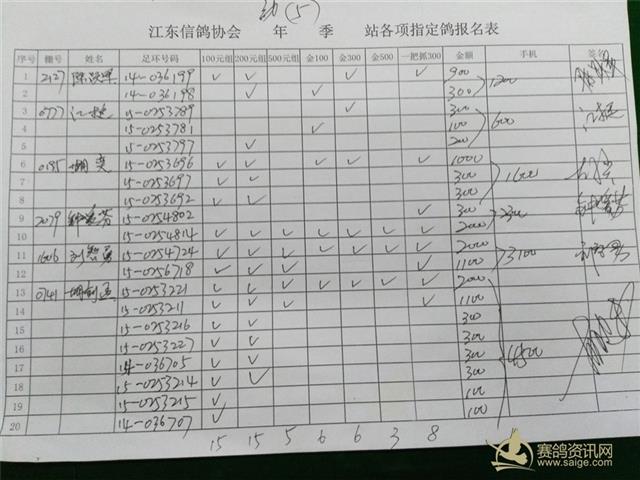 幼(5)
江东信鸽协会 年 季 站各项指定鸽报名表
序号 棚号 姓名 足环号码 100元组 200元组 500元组 金100 金300 金500 一把抓300 金额 手机 签名
1 2127 14-036199 ✓ ✓ ✓ ✓ 900
2 14-036198 ✓ ✓ 300 1200
3 0777 江 15-0253789 ✓ 300
4 15-0253781 ✓ 100 600
5 15-0253797 ✓ 200
6 0185 15-0253696 ✓ ✓ ✓ ✓ ✓ 1000
7 15-0253697 ✓ ✓ 300 1600
8 15-0253692 ✓ ✓ 300
9 2079 15-0254802 ✓ 300 2300
10 15-0254814 ✓ ✓ ✓ ✓ ✓ ✓ ✓ 2000
11 1606 刘智勇 15-0254724 ✓ ✓ ✓ ✓ ✓ ✓ ✓ 2000 3100
12 15-0256718 ✓ ✓ ✓ ✓ 1100
13 0741 15-0253221 ✓ ✓ ✓ ✓ ✓ ✓ ✓ 2000
14 15-0253211 ✓ ✓ ✓ ✓ 1100
15 15-0253216 ✓ ✓ 300
16 15-0253227 ✓ ✓ 300 4500
17 14-036705 ✓ ✓ 300
18 15-0253214 ✓ ✓ 300
19 15-0253215 ✓ 100
20 14-036707 ✓ 100
15 15 5 6 6 3 8
赛鸽资讯网
www.saige.com